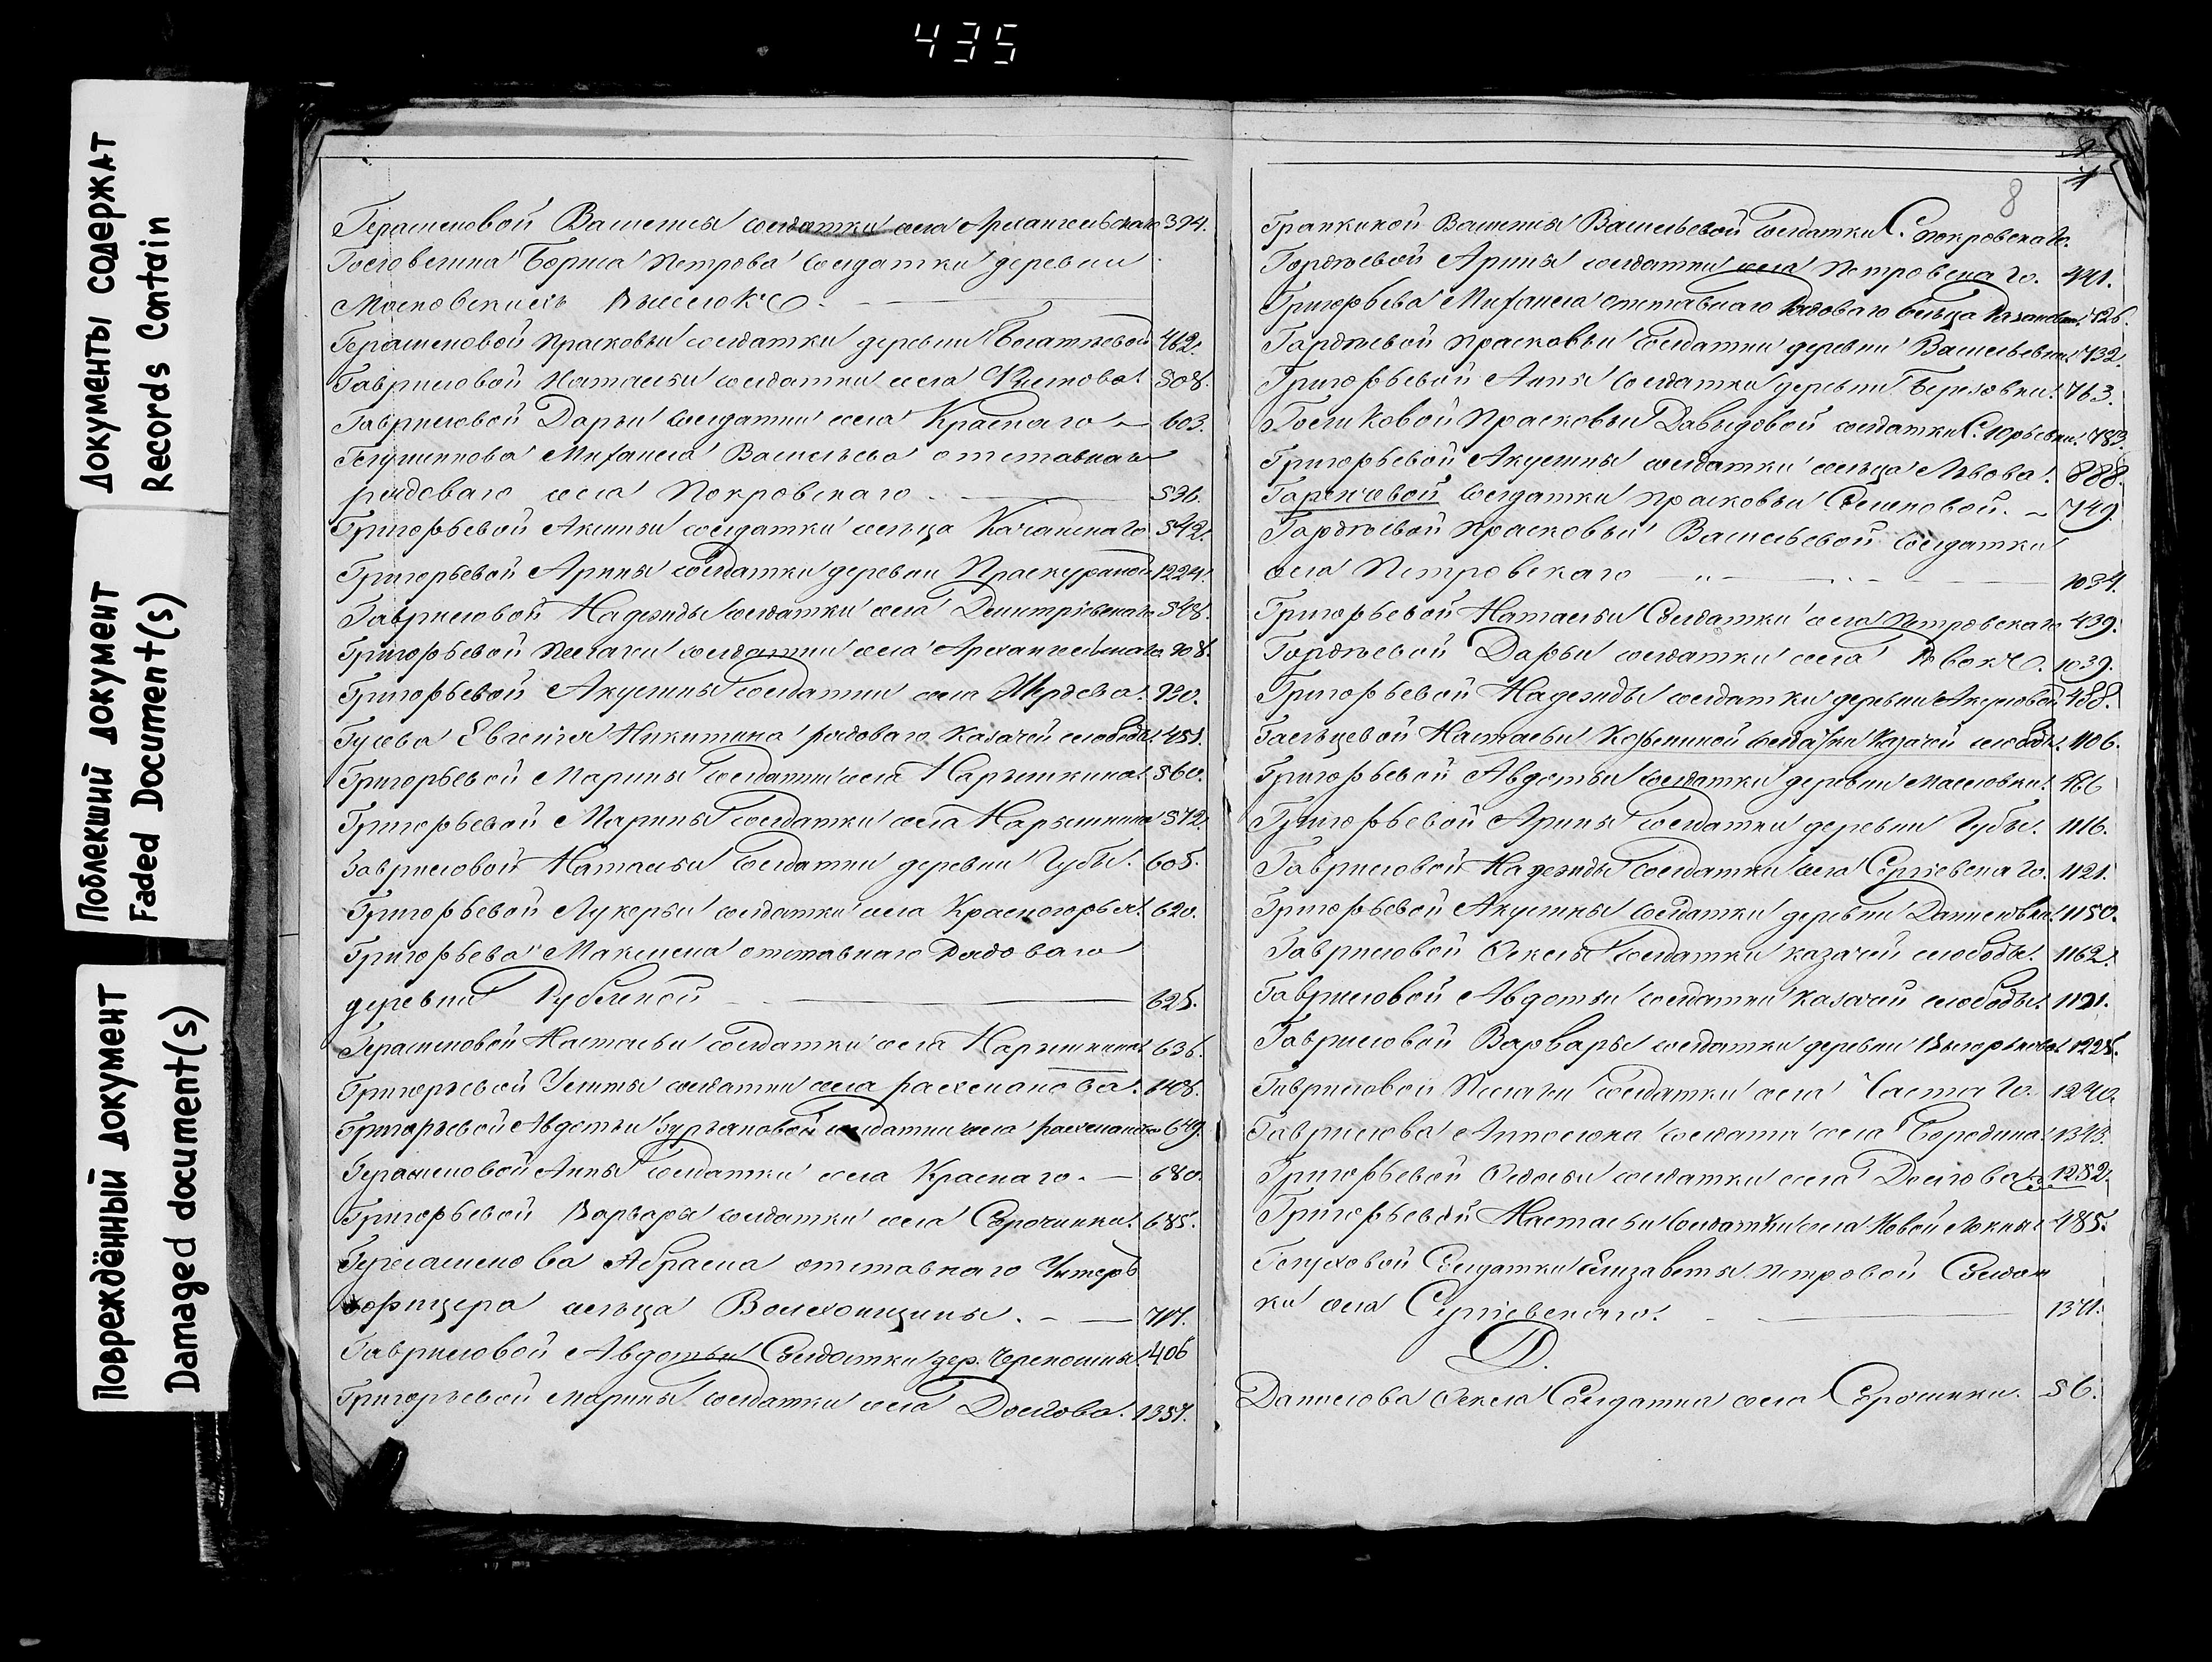 435
Документы содержат
Records Contain
Поблекший документ
Faded Document(s)
Повреждённый документ
Damaged document(s)
Герасимовой солдатки села Архангельскаго 394.
Бориса Петрова солдатки деревни
Московских
Герасимовой Прасковьи солдатки деревни 462.
Гавриловой Натальи солдатки села 508.
Гавриловой Дарьи солдатки села Краснаго 603.
Михаила Васильева отставнаго
рядоваго села Покровскаго 596.
Григорьевой Аксиньи солдатки сельца 542.
Григорьевой Арины солдатки деревни 1224.
Гавриловой Надежды солдатки села Димитріевскаго 548.
Григорьевой Пелагеи солдатки села Архангельскаго 208.
Григорьевой Акулины солдатки села 920.
Гусева Евгения Никитина рядоваго Казачей слободы. 451.
Григорьевой Марины солдатки села Нарышкина. 560.
Григорьевой Марины солдатки села Нарышкина 572.
Гавриловой Натальи солдатки деревни Губы. 605.
Григорьевой Лукерьи солдатки села Красногорья. 620.
Григорьева Максима отставнаго Рядоваго
деревни 625.
Герасимовой Настасьи солдатки села Нарышкина. 636.
Григорьевой солдатки села 1108.
Григорьевой Авдотьи солдатки села 649.
Герасимовой Анны солдатки села Краснаго. 680.
Григорьевой Варвары солдатки села Сорочинки. 685.
Абрама отставнаго Унтеръ
офицера сельца
Гавриловой Авдотьи Солдатки дер. 406
Григорьевой Марины солдатки села Долгова. 1357.
8
Васильевой солдатки С. Покровскаго.
Гордѣевой Арины солдатки села Петровскаго. 441.
Григорьева Михаила отставнаго Рядоваго сельца 726.
Гордѣевой Прасковьи Солдатки деревни Васильевки. 732.
Григорьевой Анны солдатки деревни Березовки. 763.
Прасковьи Давыдовой солдатки С. Юрьевки. 783.
Григорьевой Акулины солдатки сельца Львова. 888.
солдатки Прасковьи Семеновой. 749.
Гордѣевой Прасковьи Васильевой солдатки
села Петровскаго 1034.
Григорьевой Натальи Солдатки села Петровскаго 439.
Гордѣевой Дарьи солдатки села 1039.
Григорьевой Надежды солдатки деревни Акуловой 488.
Настасьи Козьминой солдатки Казачей слободы. 1106.
Григорьевой Авдотьи солдатки деревни Масловки. 486
Григорьевой Арины солдатки деревни Губы. 1116.
Гавриловой Надежды солдатки села Сергіевскаго. 1121.
Григорьевой Акулины солдатки деревни Даниловки. 1150.
Гавриловой Феклы солдатки казачей слободы. 1162.
Гавриловой Авдотьи солдатки Казачей слободы. 1191.
Гавриловой Варвары солдатки деревни 1225.
Гавриловой Пелагеи солдатки села Частаго. 1240.
Гаврилова солдата села Бородина. 1343.
Григорьевой Федосьи солдатки села Долгова 1252.
Григорьевой Настасьи солдатки села Новой 485.
Солдатки Елизаветы Петровой Солдат
ки села Сергіевскаго. 1371.
Д.
Данилова Фекла Солдатка села Сорочинки. 56.